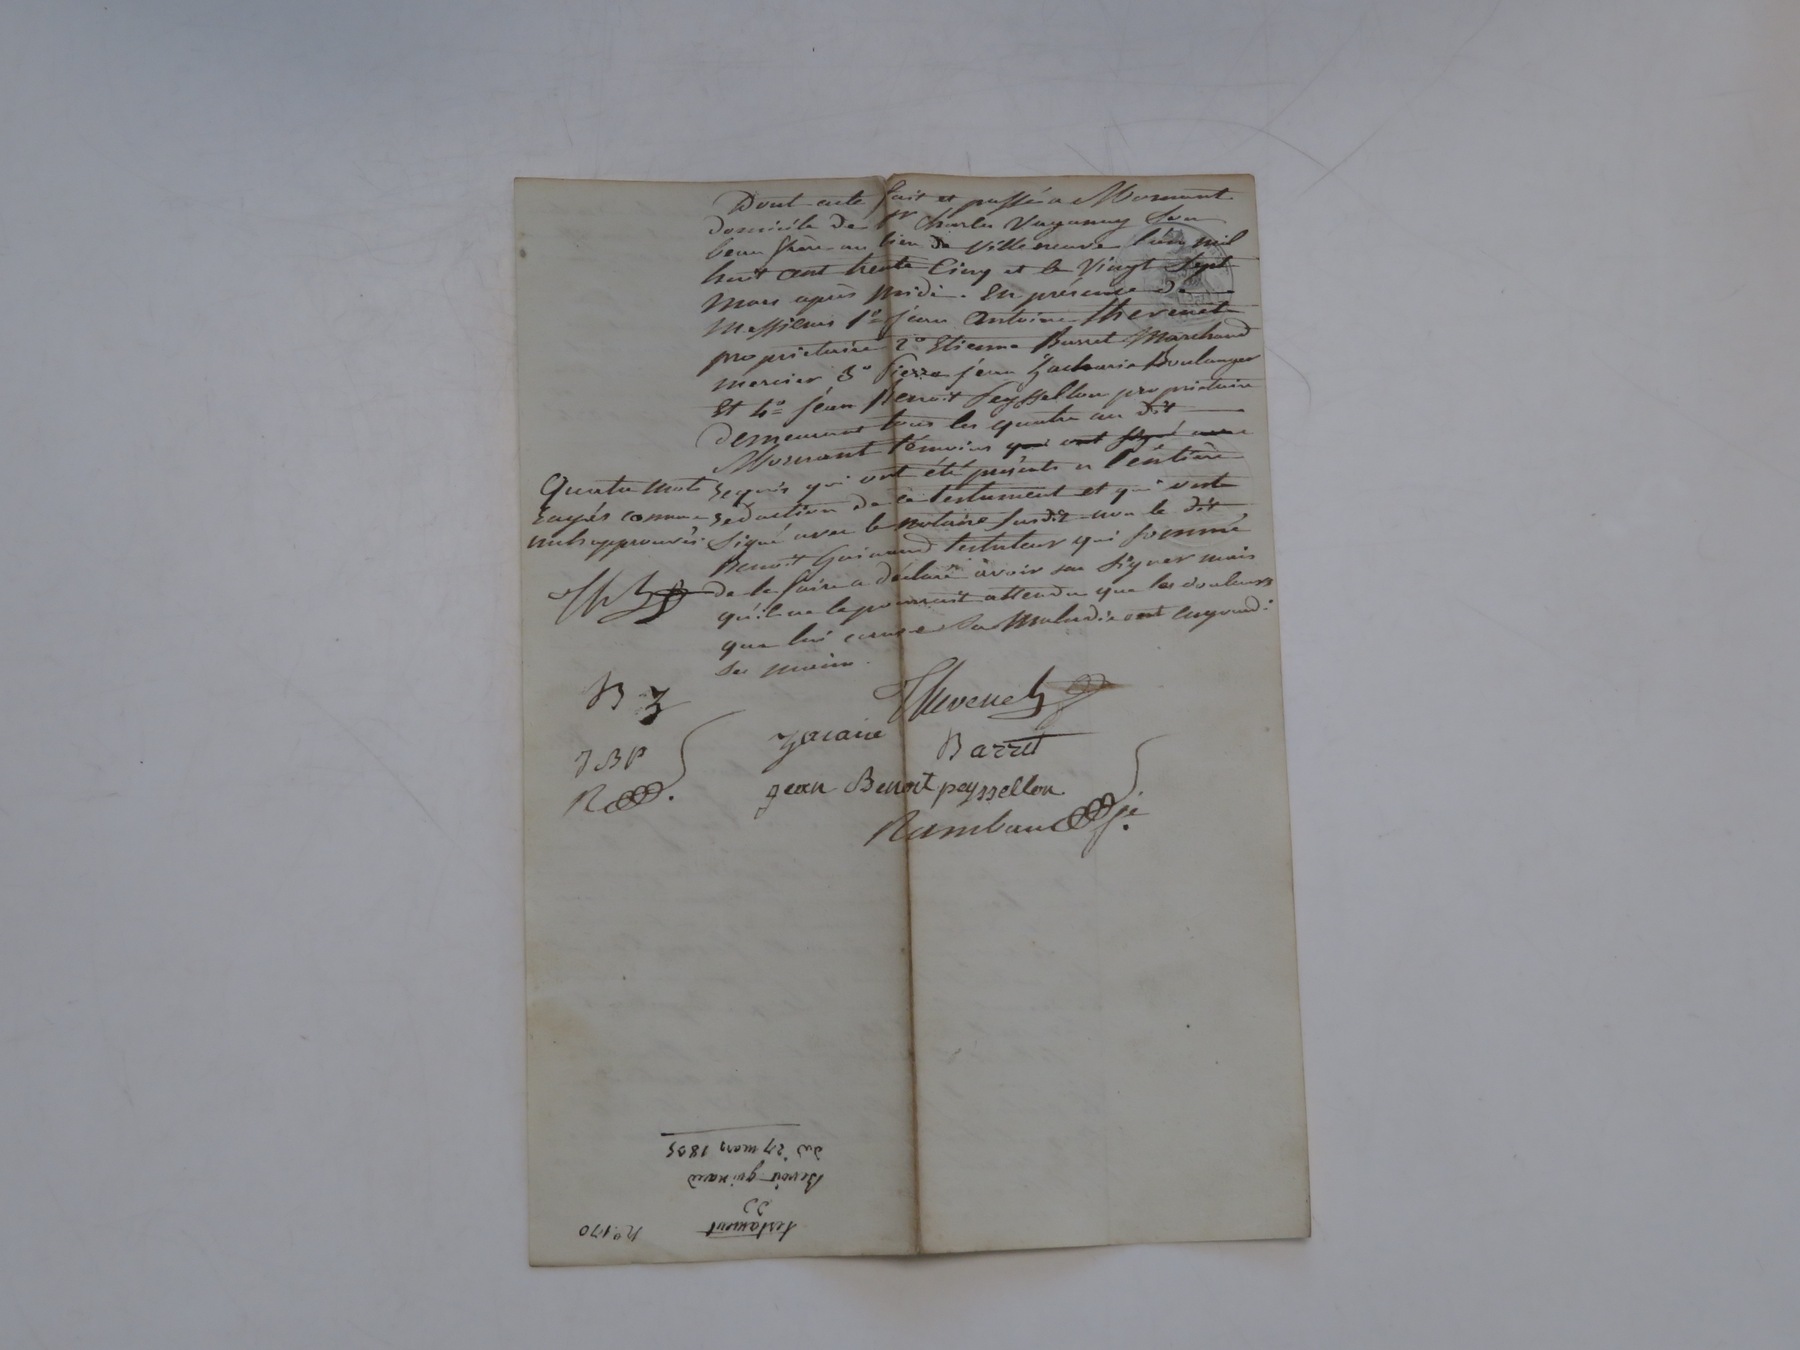 Dont acte fait et passé a Mornant
domicile de Sr Charles Vaganay son
beau frère au lieu de Villeneuve l'an mil
huit cent trente Cinq et le Vingt Sept
Mars après Midi. En présence de
Messieurs 1o jean Antoine Thevenet
propriétaire 2o Etienne Barret Marchand
mercier 3o Pierre jean Zacharie Boulanger
Et 4o jean Benoit Peyssellon propriétaire
demeurant tous les quatre au dit
Mornant témoins qui ont signé avec
requis qui ont été présents a l'entière
rédaction de ce testament et qui ont
signé avec le notaire susdit non le dit
Benoit Guinand testateur qui sommé
de le faire a déclaré avoir su signer mais
qu'il ne le pourrait attendu que les douleurs
que lui cause sa Maladie ont engourdi
ses mains.
Quatre mots
rayés comme
nuls approuvés
Th
B Z
JBP
R
Thevenet
Zacarie
Barret
jean Benoit peyssellon
Rambaud
testament
Benoit guinand
du 27 mars 1835
No 170